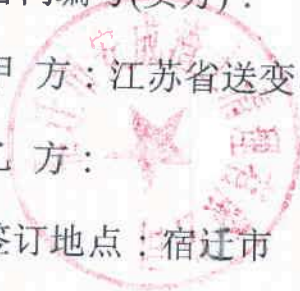 合同编号(买方):
甲 方：江苏省送变
乙 方：
签订地点：宿迁市